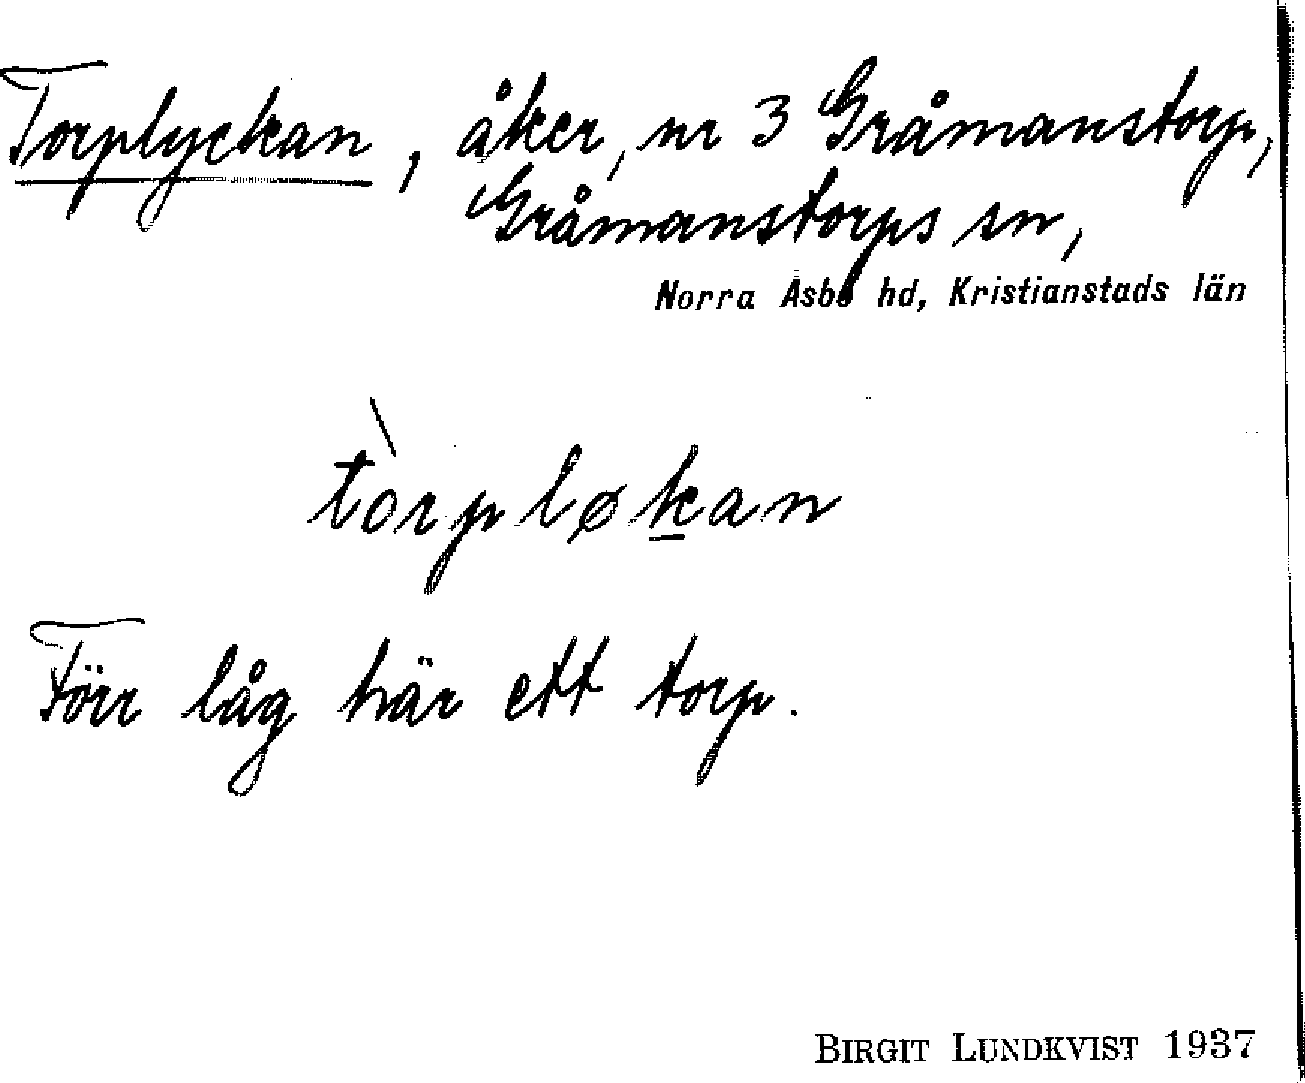 Torplyckan, åker, nr 3 Gråmanstorp,
Gråmanstorps sn,
Norra Åsbo hd, Kristianstads län
tòrpløk̲an
Förr låg här ett torp.
BIRGIT LUNDKVIST 1937